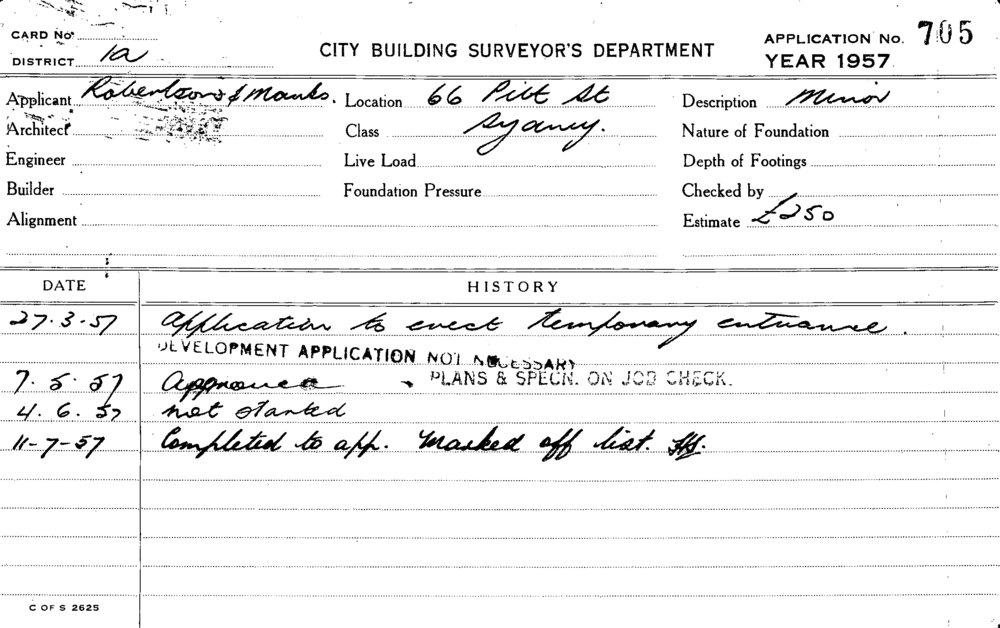 CARD No.
DISTRICT 1a
CITY BUILDING SURVEYOR'S DEPARTMENT
APPLICATION No. 705
YEAR 1957
Applicant Robertson & Marks. Location 66 Pitt St Description Minor
Architect Class Sydney. Nature of Foundation
Engineer Live Load Depth of Footings
Builder Foundation Pressure Checked by
Alignment Estimate £250
DATE HISTORY
27.3.57 Application to erect temporary entrance.
DEVELOPMENT APPLICATION NOT NECESSARY
7.5.57 Approved PLANS & SPECN. ON JOB CHECK.
4.6.57 not started
11-7-57 Completed to app. Marked off list.
C OF S 2625